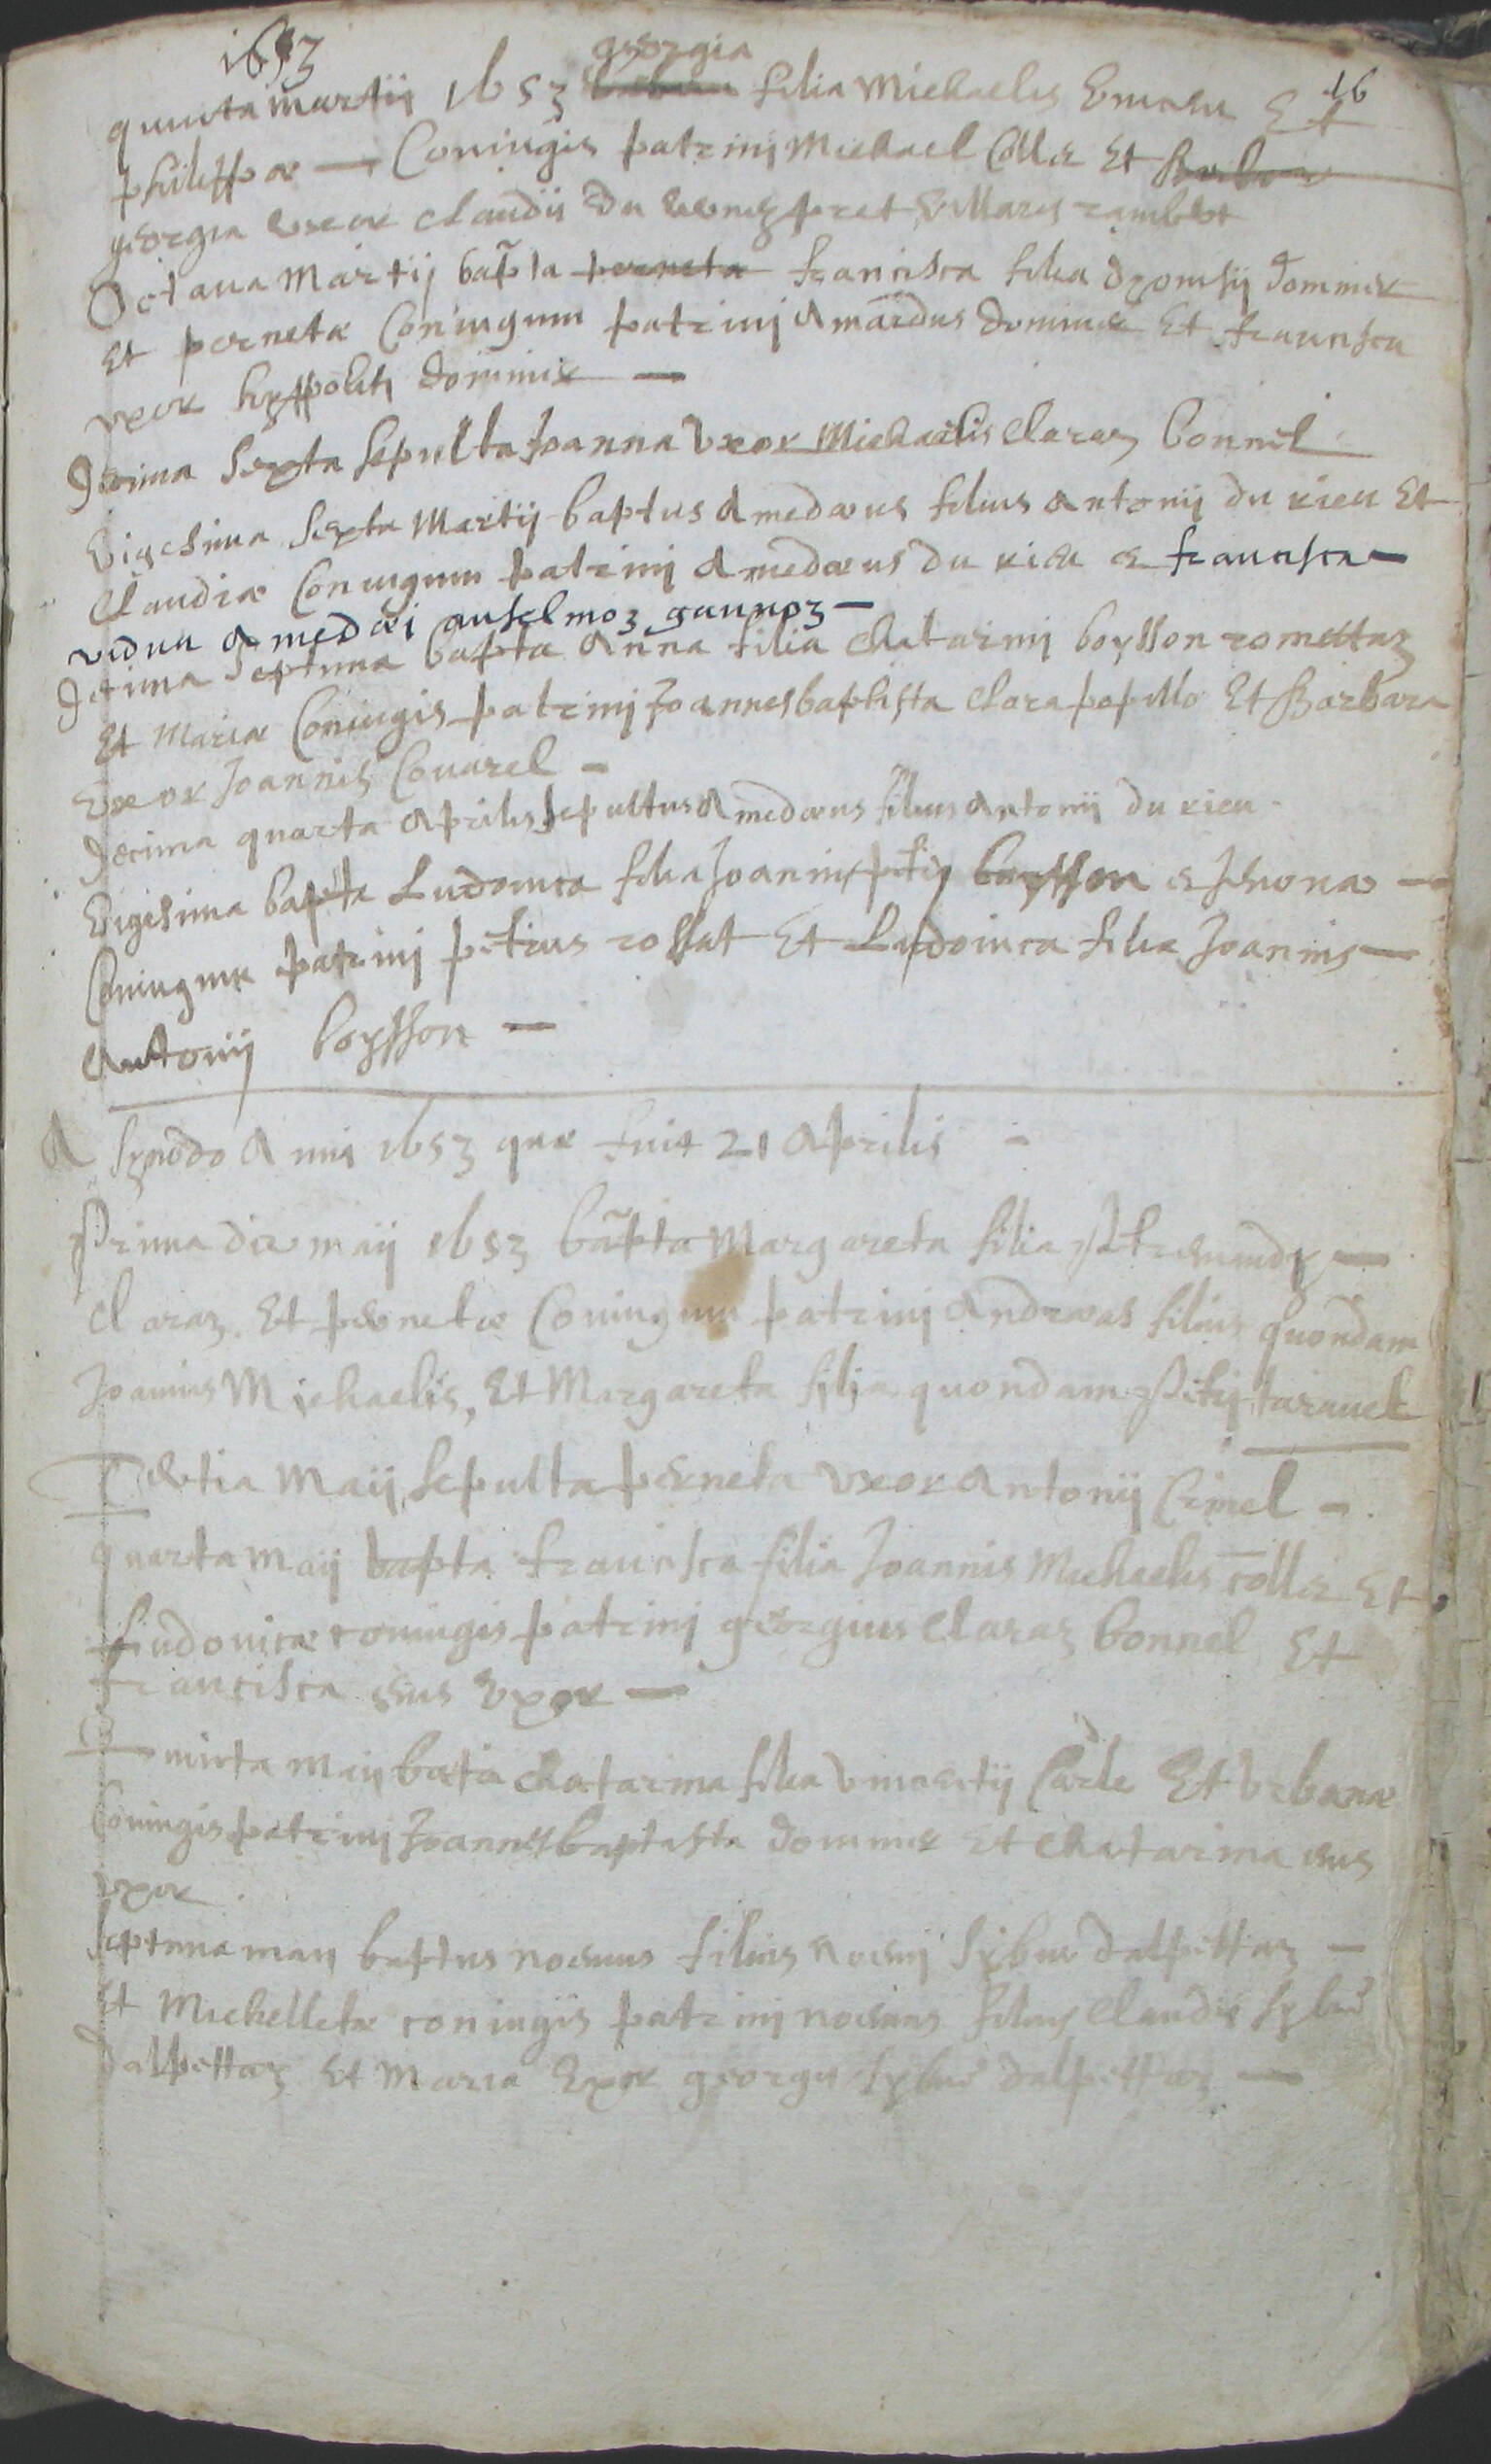 1653
16
georgia
quinta martij 1653 filia Michaelis Et
philippæ — Coniugis patrinj Michael Colle Et
georgia uxor claudij du villaris rambert
Octaua Martij bapta perneta francisca filia dyonisij dominix
Et pernetæ Coniugum patrinj Amardus dominix Et francisca
uxor hyppoliti dominix —
Decima Sexta sepulta Joanna Uxor Michaelis claraz bonnel
Vigesima Sexta Martij baptus Amedæus filius Antonij du rieu Et
Claudiæ Coniugum patrinj Amedæus du rieu & francisca —
vidua Amedæi anselmoz —
Decima Septima bapta Anna filia Chatarinj boysson romettaz
Et Mariæ Coniugis patrinj Joannesbaptista clara Et Barbara
Uxor Joannis Couarel —
Decima quarta Aprilis sepultus Amedæus filius Antonij du rieu
Vigesima bapta Ludouica filia Joannis boysson &
Coniugum patrinj petrus rossat Et Ludouica filia Joannis —
Antonij boysson —
A Synodo Annj 1653 quæ fuit 21 Aprilis
Prima die maij 1653 bapta Margareta filia —
claraz Et pernetæ Coniugum patrinj Andræas filius quondam
Joannis Michaelis, Et Margareta filia quondam tarauel
Tertia Maij sepulta perneta uxor Antonij Crinel —
quarta Maij bapta francisca filia Joannis Michaelis colle Et
Ludouicæ coniugis patrinj georgius claraz bonnel Et
francisca eius Uxor —
Quinta Maij bata chatarina filia Vincentij Carle Et Urbanæ
Coniugis patrinj Joannesbaptista dominix Et Chatarina eius
uxor
Septima maij baptus noemus filius noemj Sybue dalpettaz —
Et Michelletæ coniugis patrinj noemus filius claudij Sybue
dalpettaz Et Maria Uxor georgij Sybue dalpettaz —